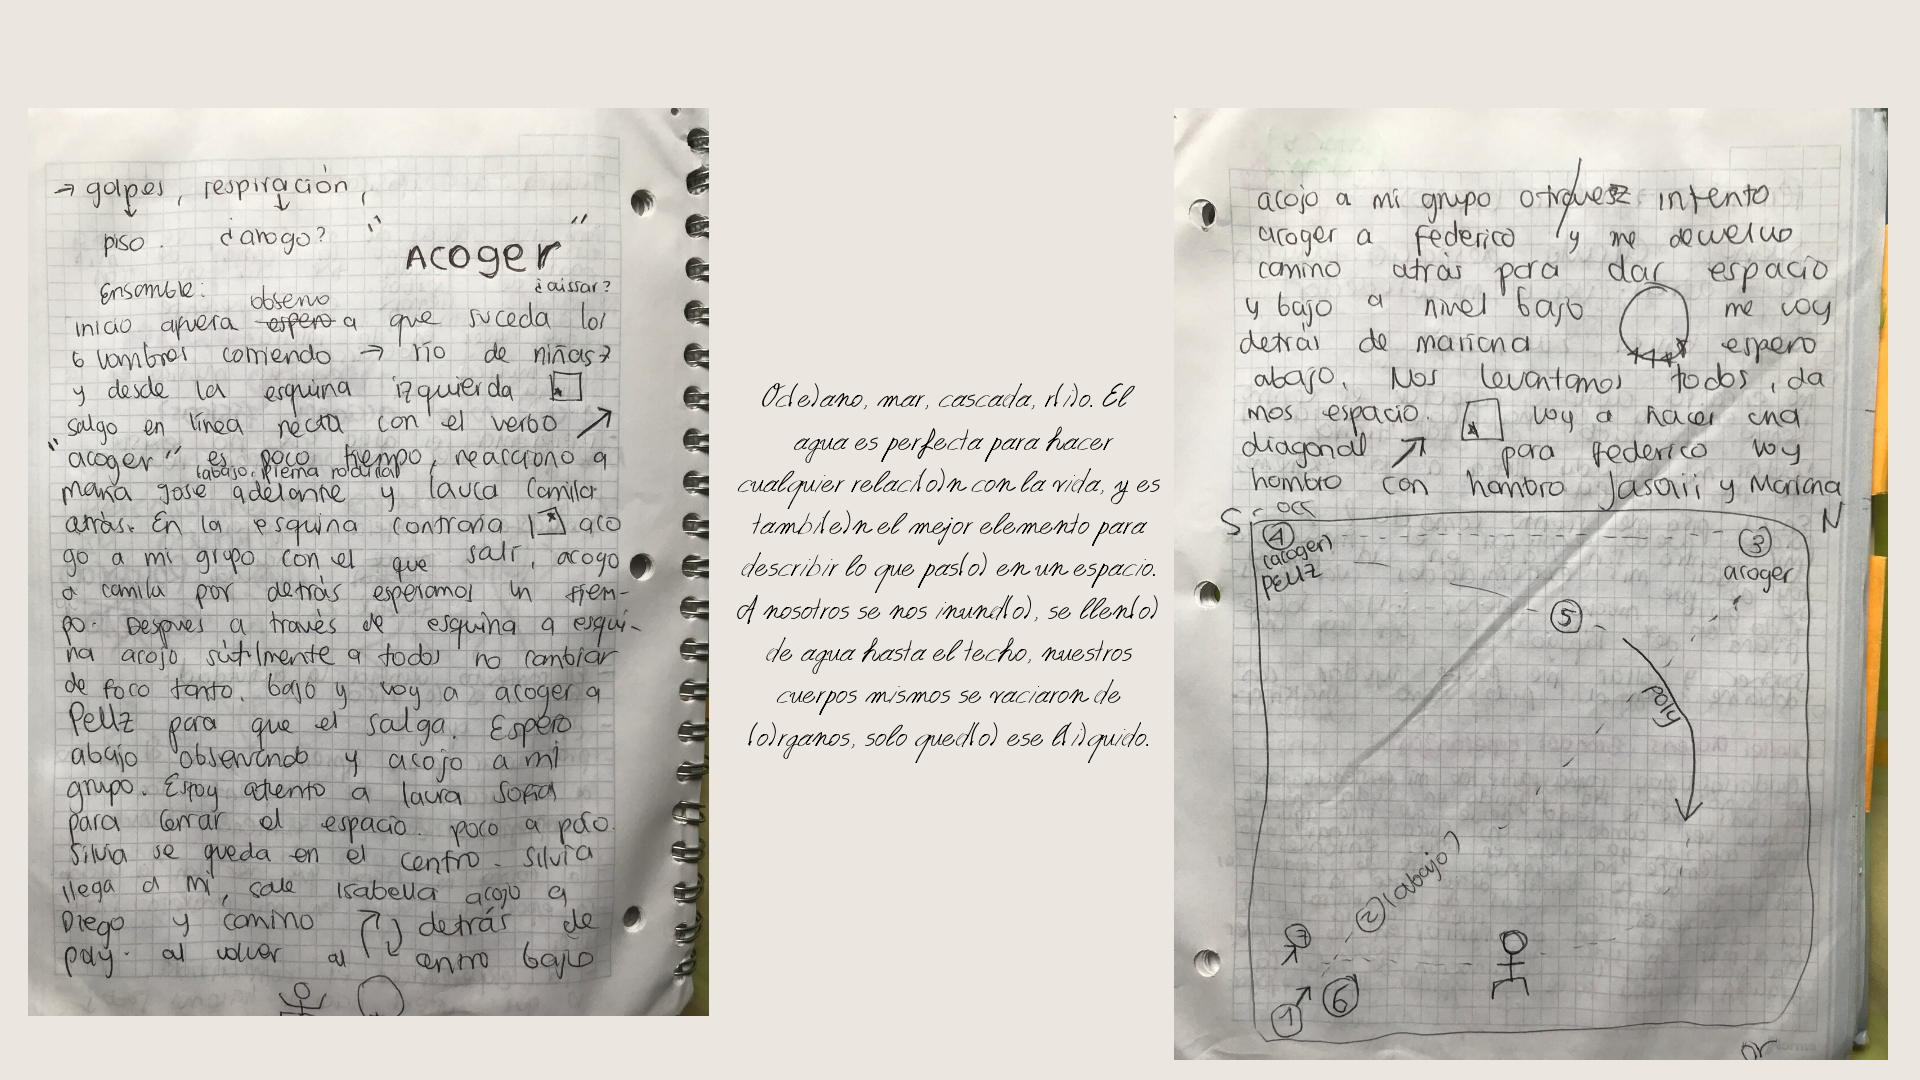 → golpes, respiración,
piso. ¿arogo?
" ACOGER "
¿aissar?
Ensamble:
observo
inicio afuera espero a que suceda los
6 hombres corriendo → río de niñas?
y desde la esquina izquierda
salgo en línea recta con el verbo ↗
"acoger" es poco tiempo, reacciono a
(abajo, pierna rodilla)
maria jose adelante y laura Camila
atrás. En la esquina contraria aco
go a mi grupo con el que salí, acogo
a camila por detrás esperamos un tiem-
po. Despues a través de esquina a esqui-
na acojo sutilmente a todos no cambiar
de foco tanto. bajo y voy a acoger a
Pellz para que el salga. Espero
abajo observando y acojo a mi
grupo. Estoy atento a laura sofia
para cerrar el espacio. poco a poco.
Silvia se queda en el centro. Silvia
llega a mi, sale Isabella acojo a
Diego y camino detrás de
poly. al volver al centro bajo
O(c)(e)ano, mar, cascada, r(i)o. El
agua es perfecta para hacer
cualquier relac(i)(o)n con la vida, y es
tamb(i)(e)n el mejor elemento para
describir lo que pas(o) en un espacio.
A nosotros se nos inund(o), se llen(o)
de agua hasta el techo, nuestros
cuerpos mismos se vaciaron de
(o)rganos, solo qued(o) ese l(i)quido.
acojo a mi grupo otra/vez intento
acoger a federico y me devuelvo
camino atrás para dar espacio
y bajo a nivel bajo me voy
detrás de mariana espero
abajo. Nos levantamos todos, da
mos espacio. voy a hacer una
diagonal ↗ para federico voy
hombro con hombro Jasaiii y Mariana
S - occ N
4 (acoger) Pellz
3 acoger
5
poly
2 (abajo)
7
1 ↗ 6
or
Norma